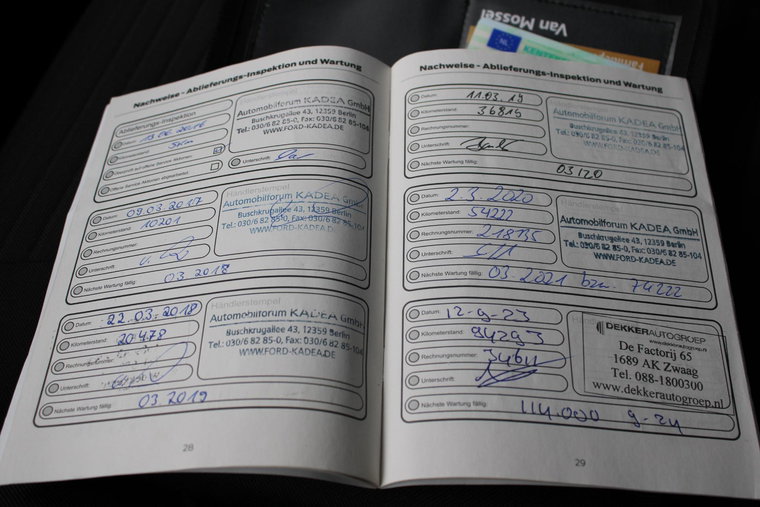 Van Mossel
Family
NL
KENTEKEN
Nachweise - Ablieferungs-Inspektion und Wartung
Ablieferungs-Inspektion
Händlerstempel
Automobilforum KADEA GmbH
Buschkrugallee 43, 12359 Berlin
Tel.: 030/6 82 85-0, Fax: 030/6 82 85-104
WWW.FORD-KADEA.DE
Unterschrift:
Offene Service Aktionen abgearbeitet:
Datum: 09.03.2017
Kilometerstand: 10201
Rechnungsnummer:
Unterschrift:
Nächste Wartung fällig: 03 2018
Händlerstempel
Automobilforum KADEA GmbH
Buschkrugallee 43, 12359 Berlin
Tel.: 030/6 82 85-0, Fax: 030/6 82 85-104
WWW.FORD-KADEA.DE
Datum: 22.03.2018
Kilometerstand: 20478
Rechnungsnummer:
Unterschrift:
Nächste Wartung fällig: 03 2019
Händlerstempel
Automobilforum KADEA GmbH
Buschkrugallee 43, 12359 Berlin
Tel.: 030/6 82 85-0, Fax: 030/6 82 85-104
WWW.FORD-KADEA.DE
28
Nachweise - Ablieferungs-Inspektion und Wartung
Datum: 11.03.19
Kilometerstand: 36819
Rechnungsnummer:
Unterschrift:
Nächste Wartung fällig: 03/20
Automobilforum KADEA GmbH
Buschkrugallee 43, 12359 Berlin
Tel.: 030/6 82 85-0, Fax: 030/6 82 85-104
WWW.FORD-KADEA.DE
Datum: 2.3.2020
Kilometerstand: 54222
Rechnungsnummer: 218135
Unterschrift:
Nächste Wartung fällig: 03.2021 bzw. 74222
Automobilforum KADEA GmbH
Buschkrugallee 43, 12359 Berlin
Tel.: 030/6 82 85-0, Fax: 030/6 82 85-104
WWW.FORD-KADEA.DE
Datum: 12-9-23
Kilometerstand: 94293
Rechnungsnummer:
Unterschrift:
Nächste Wartung fällig: 114.000 9-24
DEKKERAUTOGROEP
www.dekkerautogroep.nl
De Factorij 65
1689 AK Zwaag
Tel. 088-1800300
www.dekkerautogroep.nl
29